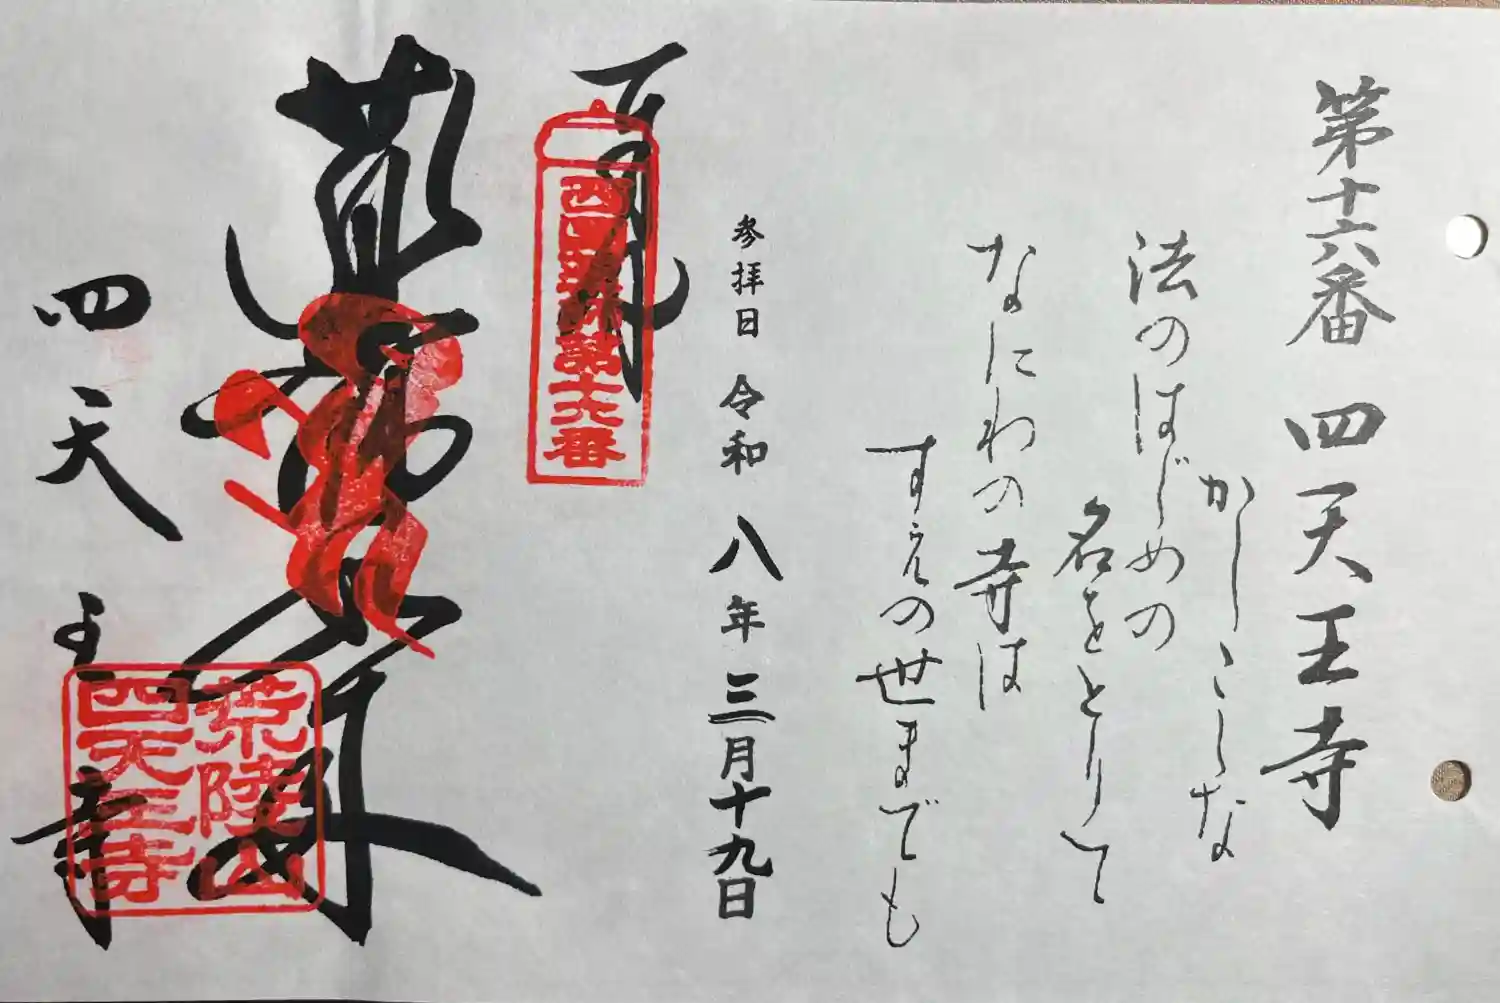 第十六番 四天王寺
かしこしな
法のはじめの
名をとりて
なにわの寺は
すえの世までも
参拝日 令和八年三月十九日
西國薬師第十六番
薬師如来
四天王寺
荒陵山
四天王寺